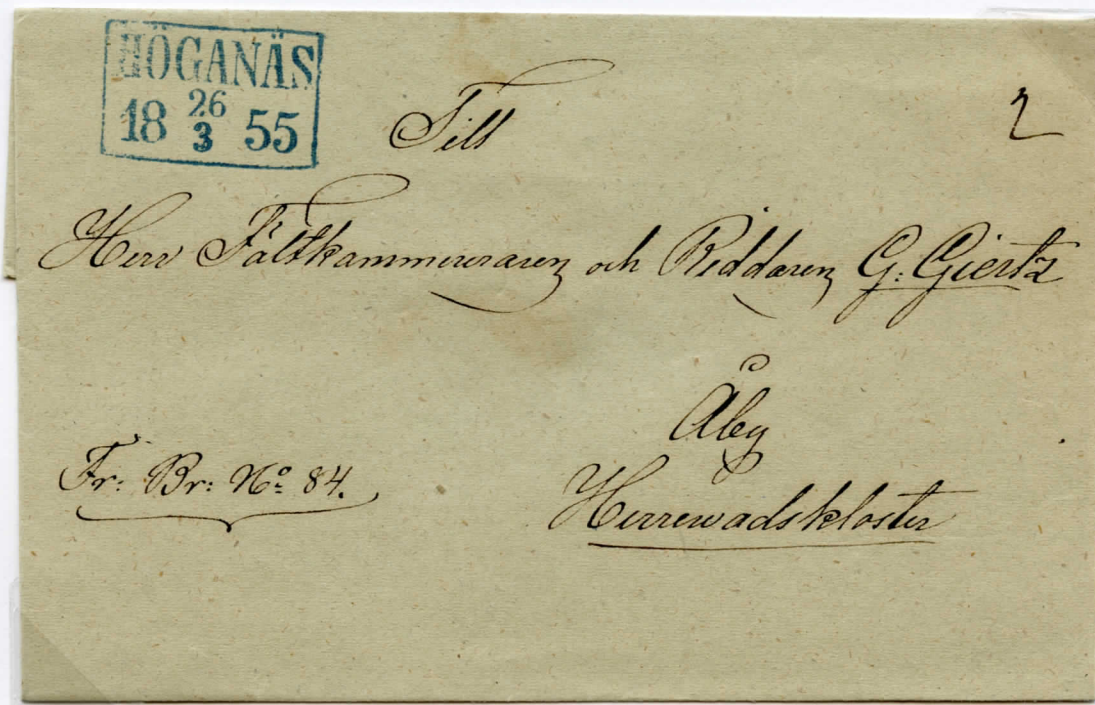 HÖGANÄS
18 26/3 55
2
Till
Herr Fältkammereraren och Riddaren G. Giertz
Åby
Fr: Br: No 84.
Herrewadskloster